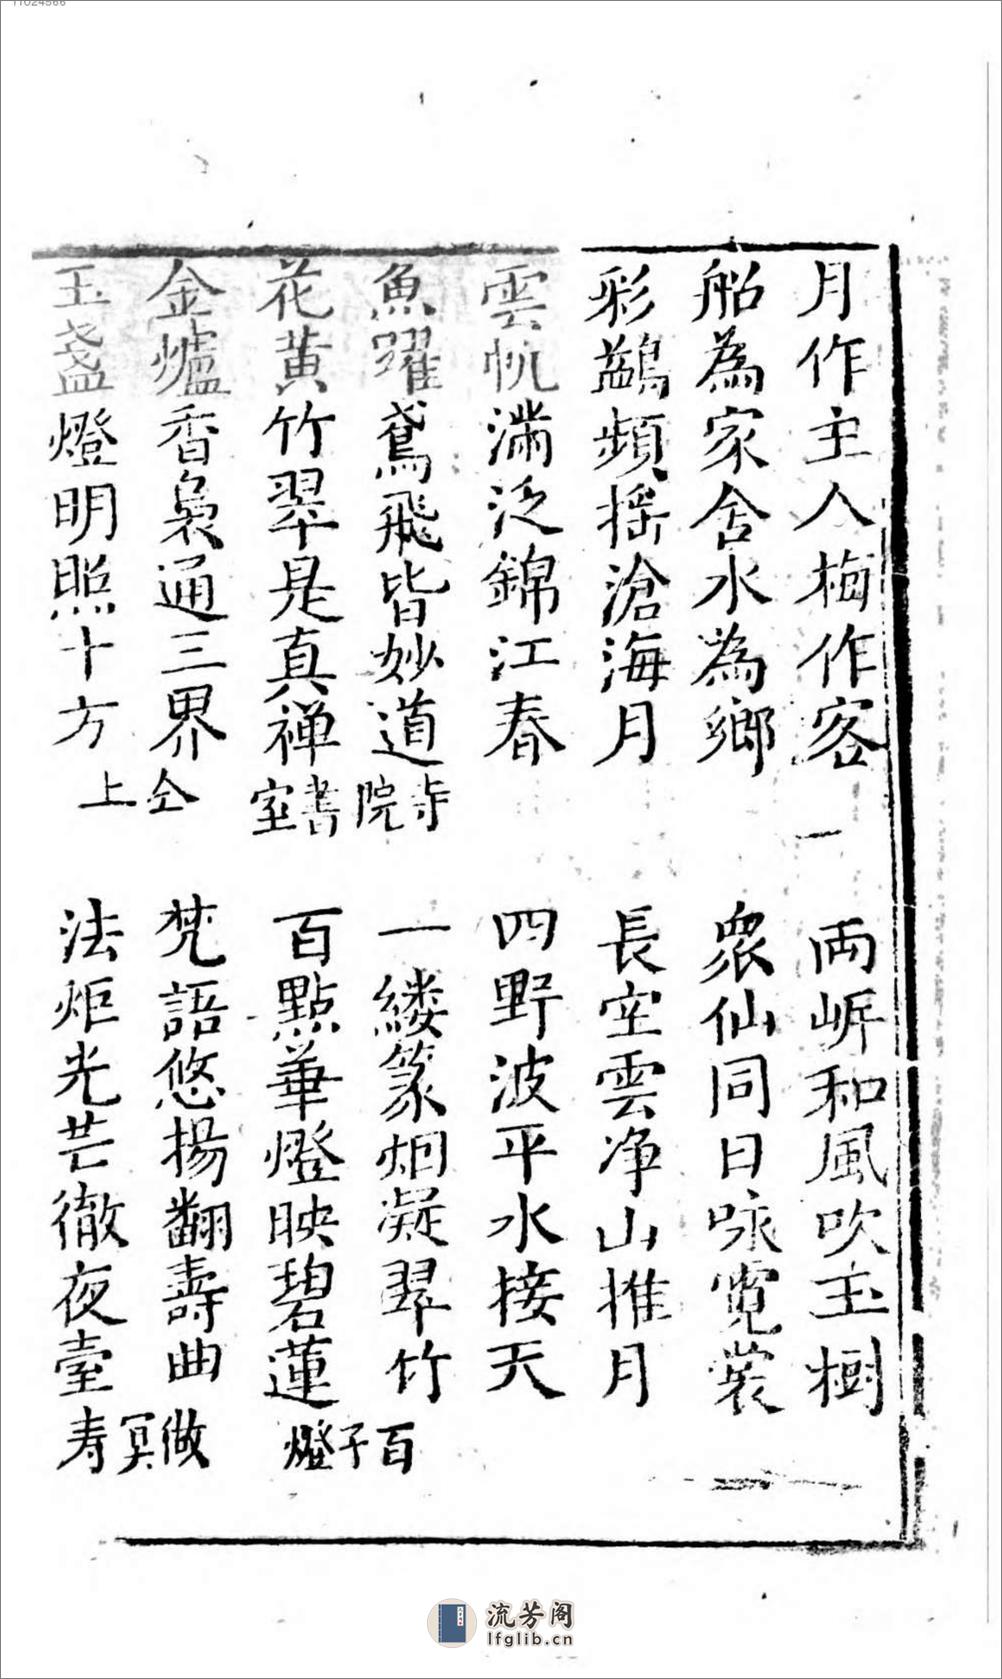 11024566
月作主人梅作客
船為家舍水為鄉
彩鷁頻揺滄海月
雲帆滿泛錦江春
魚躍鳶飛皆妙道 寺院
花黄竹翠是真禅 書室
金爐香裊通三界 仝
玉盞燈明照十方 上
一 両岍和風吹玉樹
衆仙同日咏霓裳
長空雲净山推月
四野波平水接天
一縷篆烟凝翠竹 百
百點華燈映碧蓮 子燈
梵語悠揚翻壽曲 做
法炬光芒徹夜臺 冥寿
流芳阁
lfglib.cn